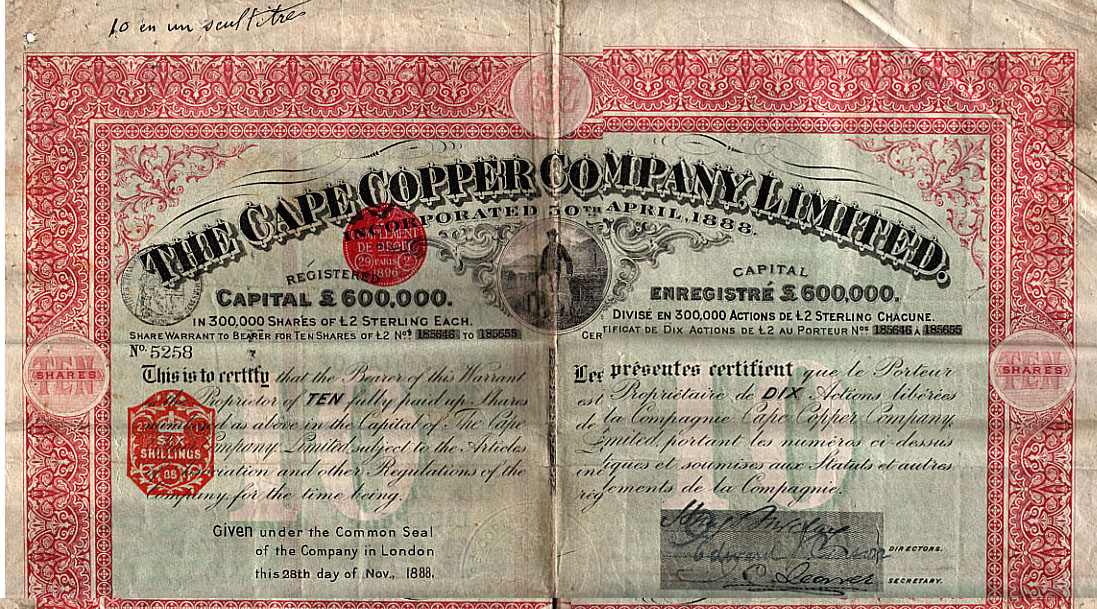 10 en un seul titre
THE CAPE COPPER COMPANY, LIMITED.
INCORPORATED 30TH APRIL, 1888.
REGISTERED
CAPITAL £600,000.
IN 300,000 SHARES OF £2 STERLING EACH.
SHARE WARRANT TO BEARER FOR TEN SHARES OF £2 Nos 185646 TO 185655
No. 5258
This is to certify that the Bearer of this Warrant
is the Proprietor of TEN fully paid up Shares
numbered as above in the Capital of The Cape
Company, Limited, subject to the Articles
and other Regulations of the
Company, for the time being.
Given under the Common Seal
of the Company in London
this 28th day of Nov., 1888.
CAPITAL
ENREGISTRÉ £600,000.
DIVISÉ EN 300,000 ACTIONS DE £2 STERLING CHACUNE.
CERTIFICAT DE DIX ACTIONS DE £2 AU PORTEUR Nos 185646 À 185655
Les présentes certifient que le Porteur
est Propriétaire de DIX Actions libérées
de la Compagnie Cape Copper Company,
Limited, portant les numéros ci-dessus
indiqués et soumises aux Statuts et autres
règlements de la Compagnie.
DIRECTORS.
SECRETARY.
TEN
SHARES
TEN
SHARES
SIX
SHILLINGS
PARIS
1896
10
10